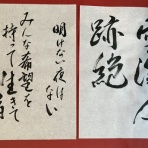 明けない夜は
ない
みんな希望を
持って生きて
人
跡絶